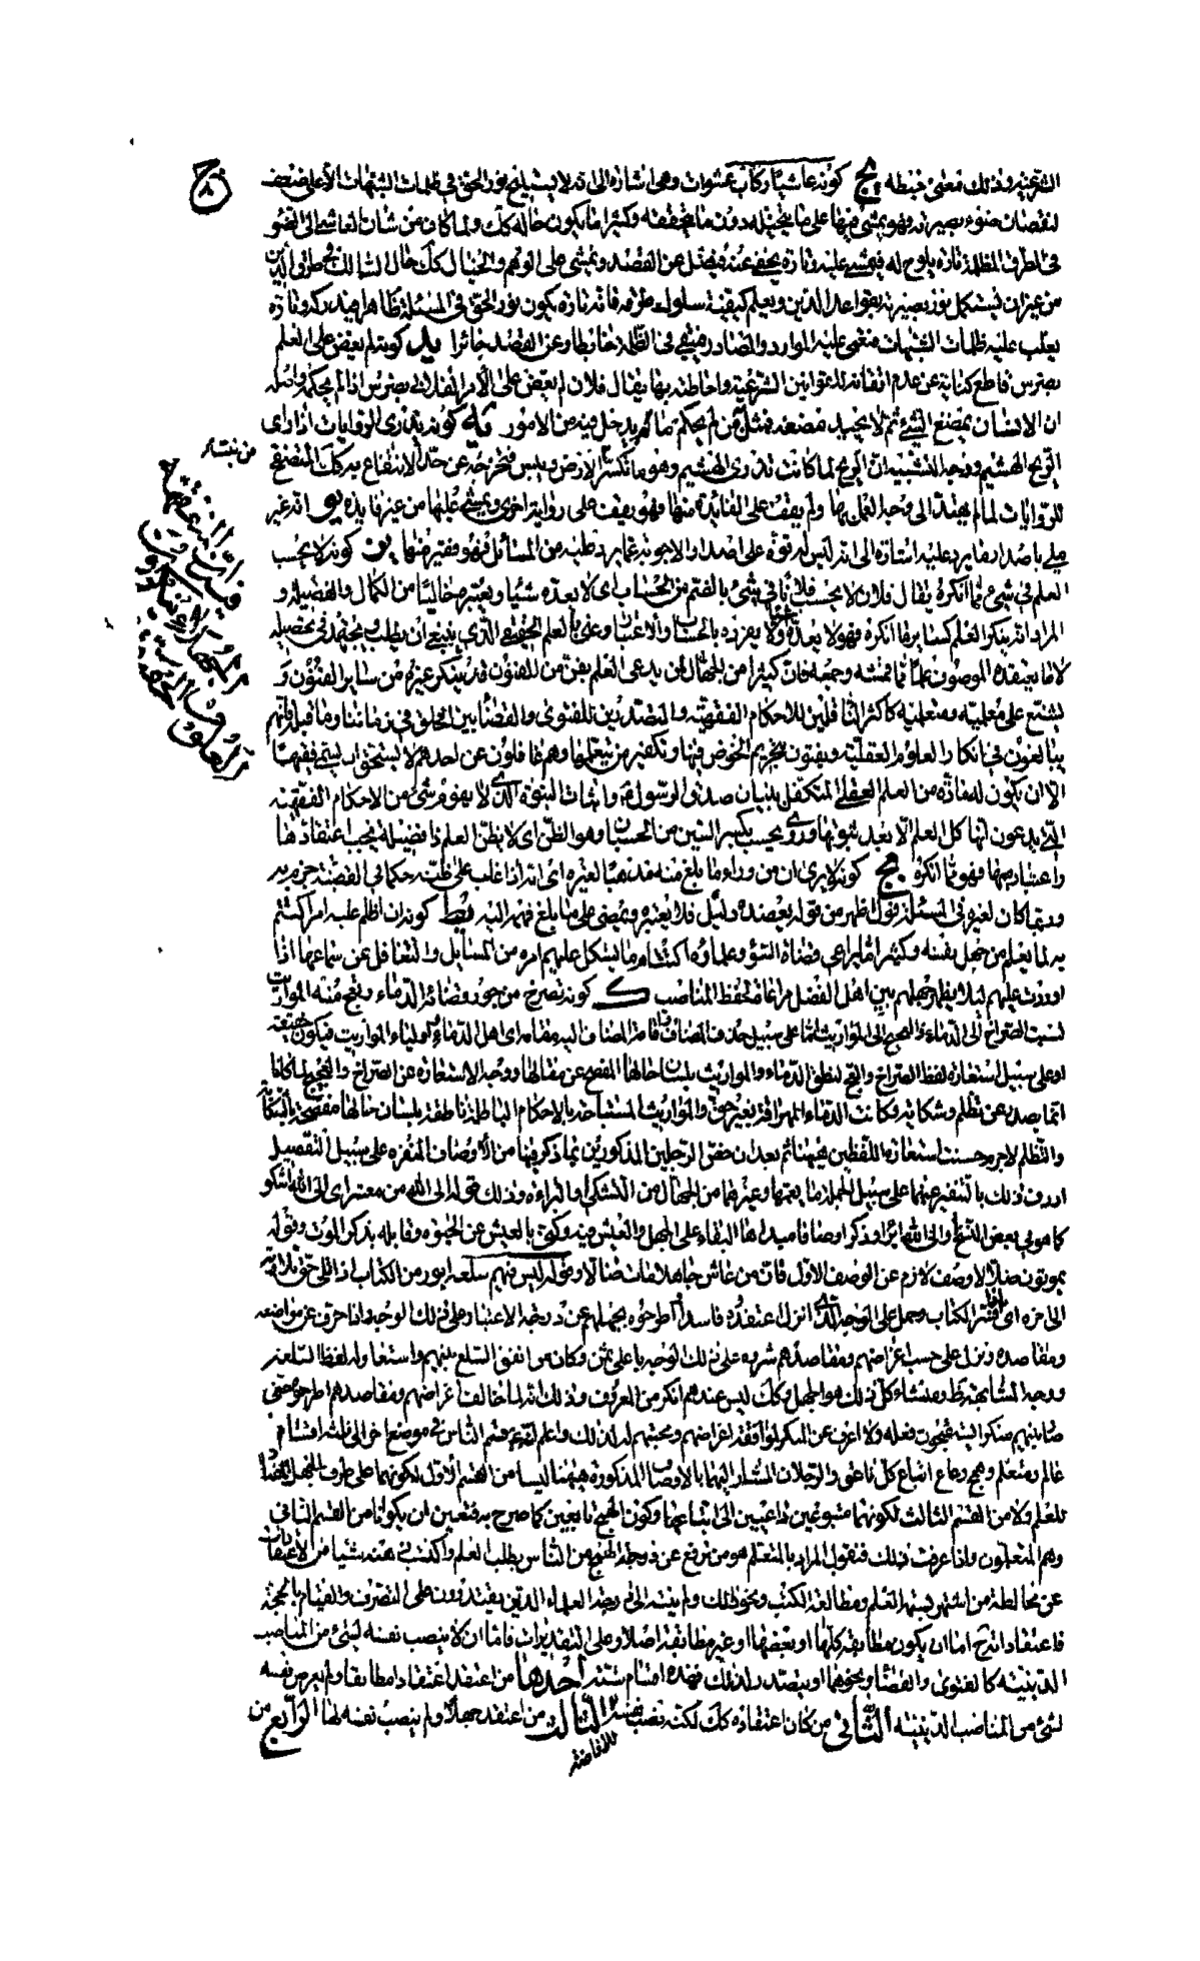 الشرعية وذلك معنى خبطه يج كونه عاشيا ركاب عشوات وهي اشارة الى انه لا يستنيح نور الحق في ظلمات الشبهات الا على ضعف
لنقصان ضوء بصيرته فهو يمشي فيها على ما يتخيله دون ما يتحققه وكثيرا ما يكون حاله كك ولما كان من شان العاشي الى الضوء
في الطرق المظلمة تارة يلوح له فيمشي عليه وتارة يخفى عنه فيضل عن القصد ويمشي على الوهم والخيال كك حال السالك في طرق الدين
من غير ان يستكمل نور بصيرته بقواعد الدين ويعلم كيفية سلوك طرقه فانه تارة يكون نور الحق في المسئلة ظاهرا فيدركه وتارة
يغلب عليه ظلمات الشبهات فتعمى عليه الموارد والمصادر فيبقى في الظلمة خابطا وعن القصد جائرا يد كونه لم يعض على العلم
بضرس قاطع كناية عن عدم اتقانه للقوانين الشرعية واحاطته بها يقال فلان لم يعض على الامر الفلاني بضرس اذا لم يحكمه واصله
ان الانسان يمضغ الشيء ثم لا يجيد مضغه فمثل به من لم يحكم ما يدخل فيه من الامور يه كونه يذري الروايات اذراء
الريح الهشيم ووجه التشبيه ان الريح لما كانت تذري الهشيم وهو ما تكسر الارض ويبس فتخرجه عن حد الانتفاع به كك المتصفح
للروايات لما لم يهتد الى وجه العمل بها ولم يقف على الفائدة منها فهو يقف على رواية اخرى ويمشي عليها من غير فايدة يو انه غير
ملي باصدار ما يرد عليه اشارة الى انه ليس له قوة على اصدار الاجوبة عما يرد عليه من المسائل فهو فقير منها يز كونه لا يحسب
العلم في شيء مما انكره يقال فلان لا يحسب فلانا في شيء بالضم من الحساب اى لا يعده شيئا ويعتبره خاليا من الكمال والفضيلة و
المراد انه ينكر العلم كساير ما انكره فهو لا يعده شيئا ولا يفرده بالحساب والاعتبار وعنى بالعلم الحقيقي الذي ينبغي ان يطلب ويجتهد في تحصيله
لا ما يعتقده الموصوف علما مما قمشه وجمعه فان كثيرا من الجهال ممن يدعى العلم بفن من الفنون قد ينكر غيره من ساير الفنون و
يشنع على معلميه ومتعلميه كاكثر الناقلين للاحكام الفقهية والمتصدرين للفتوى والقضاء بين الخلق في زماننا وما قبله فانهم
يبالغون في انكار العلوم العقلية ويفتون بتحريم الخوض فيها وتكفير من يتعلمها وهم غافلون عن ان احدهم لا يستحق ان يسمى فقيها
الا ان يكون له مادة من العلم العقلي المتكفل ببيان صدق الرسول واثبات النبوة الذي لا يقوم شيء من الاحكام الفقهية
التي يدعون انها كل العلم الا بعد ثبوتها وروى يحسب بكسر السين من الحسبان وهو الظن اى لا يظن العلم ذا فضيلة يجب اعتقادها
واعتباره بها فهو مما انكره يح كونه لا يرى ان من وراء ما بلغ منه مذهبا لغيره اى انه اذا غلب على ظنه حكما في القضية جزم به
وربما كان لغيره في المسئلة قول اظهر من قوله يعضده دليل فلا يعتبره ويمضى على ما بلغ فهمه اليه يط كونه ان اظلم عليه امر اكتتم
به لما يعلم من جهل نفسه وكثيرا ما يراعى قضاة السوء وعلماؤه اكتتام ما يشكل عليهم امره من المسايل والتغافل عن سماعها اذا
اوردت عليهم لئلا يظهر جهلهم بين اهل الفضل مراعاة لحفظ المناصب ك كونه تصرخ من جور قضائه الدماء وتعج منه المواريث
نسبة الصراخ الى الدماء والعجيج الى المواريث اما على سبيل حذف المضاف واقامة المضاف اليه مقامه اى اهل الدماء واولياء المواريث فيكون حقيقة
او على سبيل استعارة لفظ الصراخ والعج لنطق الدماء والمواريث بلسان حالها المفصح عن مقالها ووجه الاستعارة ان الصراخ والعجيج لما كانا
انما يصدر عن تظلم وشكاية وكانت الدماء المهراقة بغير حق والمواريث المستباحة بالاحكام الباطلة ناطقة بلسان حالها مفصحة بالشكاية
والتظلم لاجرم حسنت استعارة اللفظين هيهنا ثم بعد ان خص الرجلين المذكورين بما ذكر فيهما من الاوصاف المنفرة على سبيل التفصيل
اردف ذلك بالتنفير عنهما على سبيل الجملة بما يعمهما وغيرهما من الجهال من التشكي والبراءة وذلك قوله الى الله من معشر اى الى الله اشكو
كما هو في بعض النسخ والى الله ابرأ وذكر اوصافا مبداها البقاء على الجهل والعيش فيه وكنى بالعيش عن الحيوة وقابله بذكر الموت وقوله
يموتون ضلالا وصف لازم عن الوصف الاول فان من عاش جاهلا مات ضالا وقوله ليس فيهم سلعة ابور من الكتاب اذا تلى حق تلاوته
الى اخره اى اذا فسر الكتاب وحمل على الوجه الذي انزل عليه اعتقدوه فاسدا واطرحوه بجهلهم عن درجة الاعتبار وعلى ذلك الوجه واذا حرف عن مواضعه
ومقاصده ونزل على حسب اغراضهم ومقاصدهم شروه على ذلك الوجه باعلى ثمن وكان من انفق السلع بينهم واستعار له لفظ السلعة
ووجه المشابهة ظ ومنشاء كل ذلك هو الجهل وكك ليس عندهم انكر من المعروف وذلك انه لما خالف اغراضهم ومقاصدهم اطرحوه حتى
صار بينهم منكرا يستقبحون فعله ولا اعرف من المنكر لموافقة اغراضهم ومحبتهم له لذلك واعلم انه قسم الناس في موضع اخر الى ثلثة اقسام
عالم ومتعلم وهمج رعاع اتباع كل ناعق والرجلان المشار اليهما بالاوصاف المذكورة هيهنا ليسا من القسم الاول لكونهما على طرف الجهل المضاد
للعلم ولا من القسم الثالث لكونهما متبوعين داعيين الى اتباعهما وكون الهمج تابعين كما صرح به فتعين ان يكونا من القسم الثاني
وهم المتعلمون واذا عرفت ذلك فنقول المراد بالمتعلم هو من ترفع عن درجة الهمج من الناس بطلب العلم واكتسب في ذهنه شيئا من الاعتقادات
عن مخالطة من اشتهر بسمة العلم ومطالعة الكتب ونحو ذلك ولم ينته الى درجة العلماء الذين يقتدرون على التصرف والقيام بالحجة
فاعتقاداته ح اما ان يكون مطابقة كلها او بعضها او غير مطابقة اصلا وعلى التقديرات فاما ان لا ينصب نفسه لشيء من المناصب
الدينية كالفتوى والقضاء ونحوهما او يتصدر لذلك فهذه اقسام ستة احدها من اعتقد اعتقادا مطابقا ولم يعرض نفسه
لشيء من المناصب الدينية الثاني من كان اعتقاده كك لكنه نصب نفسه للافاضة الثالث من اعتقد جهلا ولم ينصب نفسه لها الرابع من